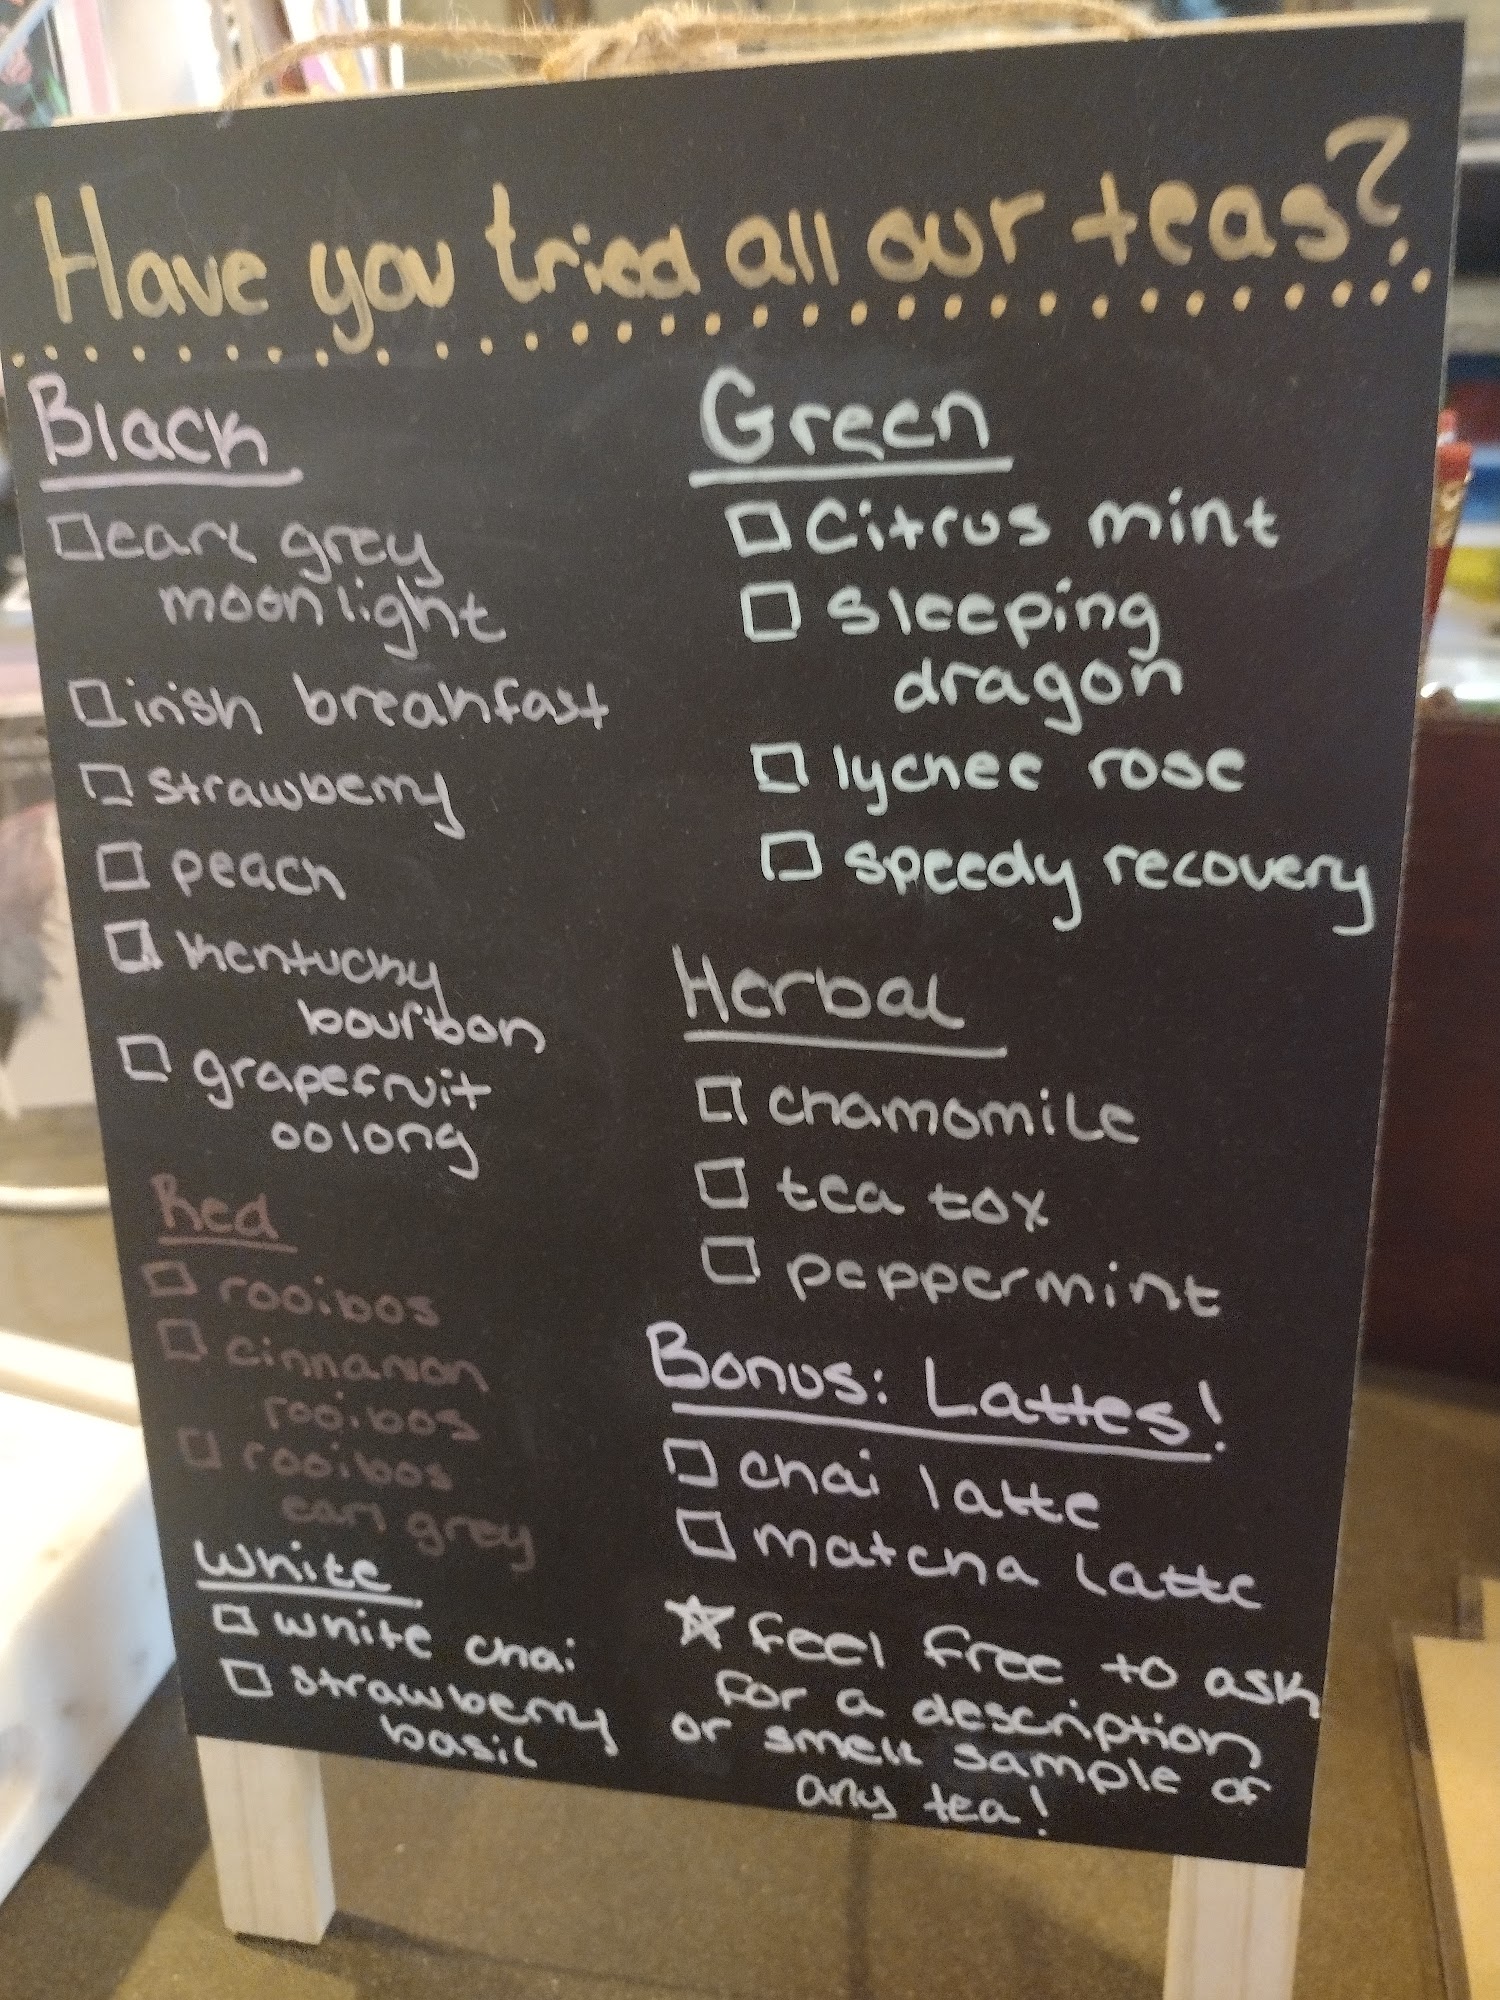 Have you tried all our teas?
Black
earl grey
moonlight
irish breakfast
strawberry
peach
kentucky
bourbon
grapefruit
oolong
Red
rooibos
cinnamon
rooibos
rooibos
earl grey
White
white chai
strawberry
basil
Green
Citrus mint
sleeping
dragon
lychee rose
speedy recovery
Herbal
chamomile
tea tox
peppermint
Bonus: Lattes!
chai latte
matcha latte
feel free to ask
for a description
or smell sample of
any tea!